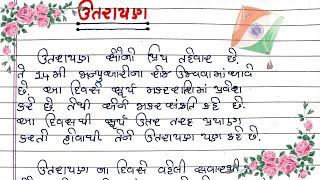 ઉતરાયણ
ઉતરાયણ સૌનો પ્રિય તહેવાર છે.
તે 14મી જાન્યુઆરીના રોજ ઉજવવામાં આવે
છે. આ દિવસે સૂર્ય મકરરાશિમાં પ્રવેશ
કરે છે. તેથી એને મકરસંક્રાંતિ કહે છે.
આ દિવસથી સૂર્ય ઉતર તરફ પ્રયાણ
કરતી હોવાથી તેને ઉતરાયણ પણ કહે છે.
ઉતરાયણ ના દિવસે વહેલી સવારથી